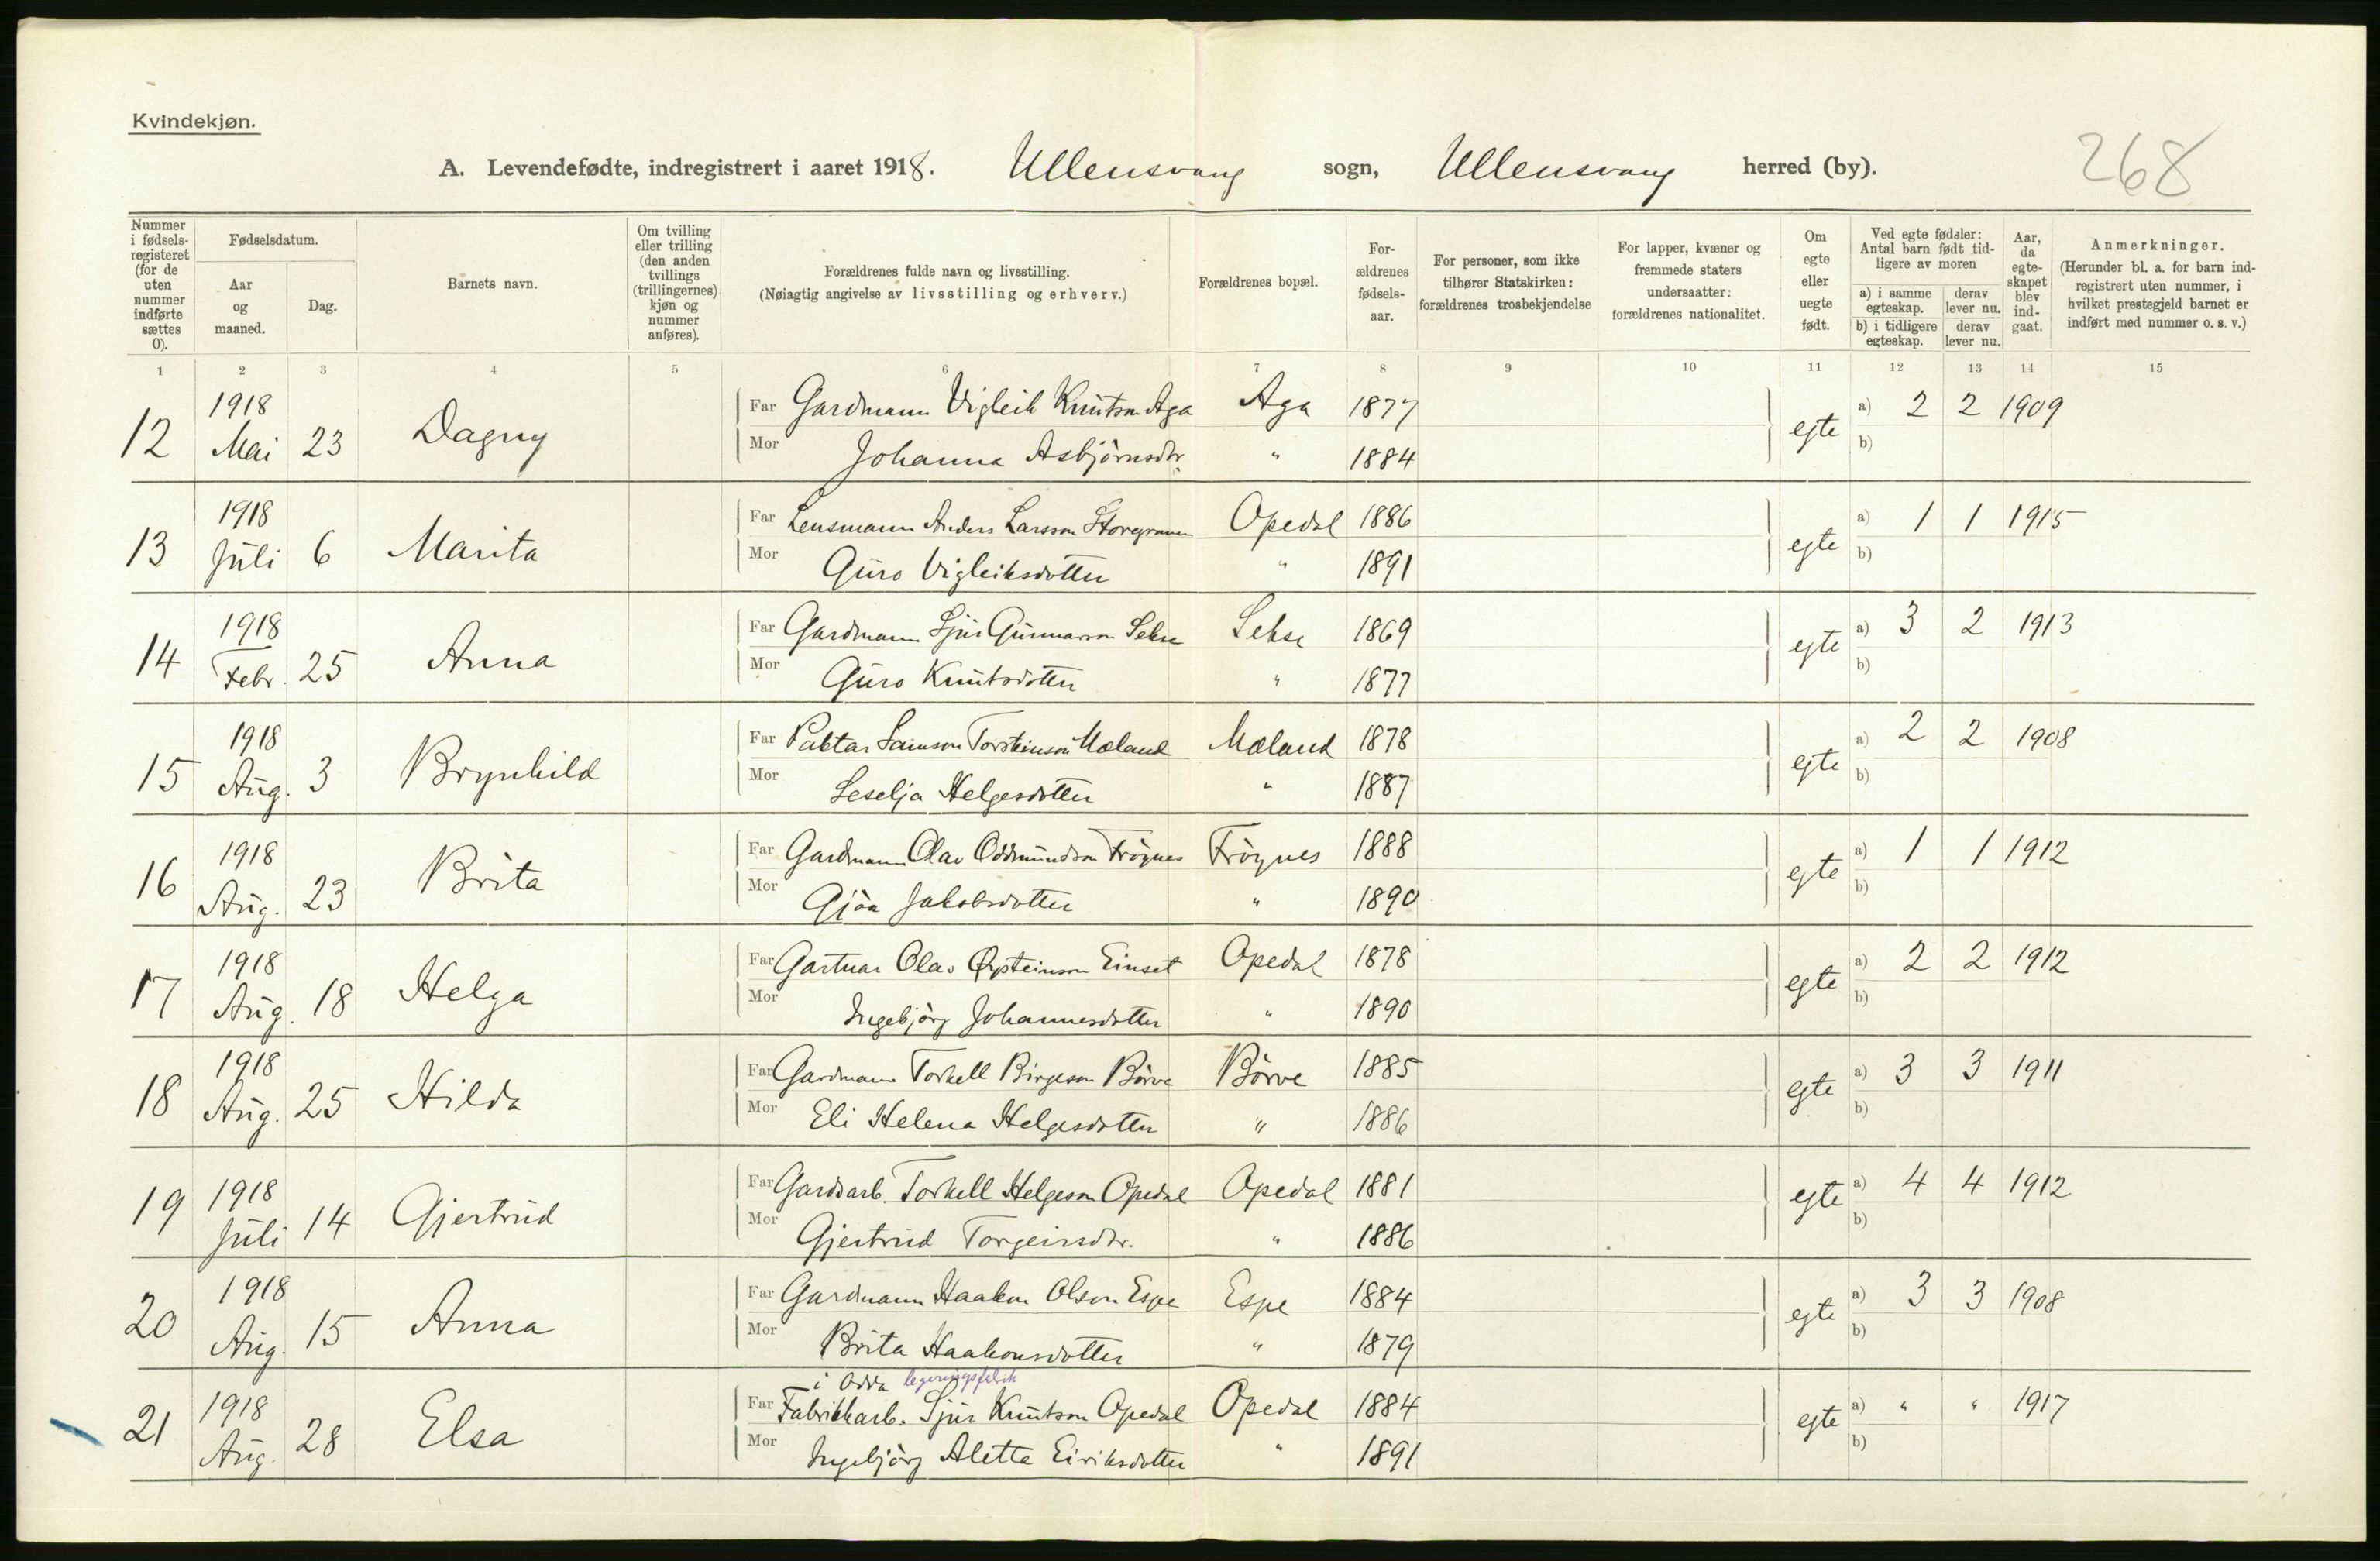 Kvindekjøn.
A. Levendefødte, indregistrert i aaret 1918. Ullensvang sogn, Ullensvang herred (by). 268
Nummer i fødsels-registeret (for de uten nummer indførte sættes 0).
Fødselsdatum.
Aar og maaned.
Dag.
Barnets navn.
Om tvilling eller trilling (den anden tvillings (trillingernes) kjøn og nummer anføres).
Forældrenes fulde navn og livsstilling.
(Nøiagtig angivelse av livsstilling og erhverv.)
Forældrenes bopæl.
For-ældrenes fødsels-aar.
For personer, som ikke tilhører Statskirken: forældrenes trosbekjendelse
For lapper, kvæner og fremmede staters undersaatter: forældrenes nationalitet.
Om egte eller uegte født.
Ved egte fødsler: Antal barn født tid-ligere av moren
a) i samme egteskap. derav lever nu.
b) i tidligere egteskap. derav lever nu.
Aar, da egte-skapet blev ind-gaat.
Anmerkninger.
(Herunder bl. a. for barn ind-registrert uten nummer, i hvilket prestegjeld barnet er indført med nummer o. s. v.)
1 2 3 4 5 6 7 8 9 10 11 12 13 14 15
1918 Far Gardmann Vigleik Knutson Aga Aga 1877 a) 2 2 1909
12 Mai 23 Dagny Mor Johanna Asbjörnsdtr. " 1884 egte b)
1918 Far Lensmann Anders Larsson Opedal 1886 a) 1 1 1915
13 Juli 6 Marita Mor Guro Vigleiksdotter " 1891 egte b)
1918 Far Gardmann Sjur Gunnarson Sekse Sekse 1869 a) 3 2 1913
14 Febr. 25 Anna Mor Guro Knutsdotter " 1877 egte b)
1918 Far Samson Torsteinson Mæland Mæland 1878 a) 2 2 1908
15 Aug. 3 Brynhild Mor Leselja Helgesdotter " 1887 egte b)
1918 Far Gardmann Olav Oddmundson Fröynes Fröynes 1888 a) 1 1 1912
16 Aug. 23 Brita Mor Gjöa Jakobsdotter " 1890 egte b)
1918 Far Gartnar Olav Øysteinson Einset Opedal 1878 a) 2 2 1912
17 Aug. 18 Helga Mor Ingebjörg Johannesdotter " 1890 egte b)
1918 Far Gardmann Torkell Birgeson Börve Börve 1885 a) 3 3 1911
18 Aug. 25 Hilda Mor Eli Helena Helgesdotter " 1886 egte b)
1918 Far Gardsarb. Torkell Helgeson Opedal Opedal 1881 a) 4 4 1912
19 Juli 14 Gjertrud Mor Gjertrud Torgeirsdtr. " 1886 egte b)
1918 Far Gardmann Haakon Olson Espe Espe 1884 a) 3 3 1908
20 Aug. 15 Anna Mor Brita Haakonsdotter " 1879 egte b)
i Odda legeringsfabrik
1918 Far Fabrikkarb. Sjur Knutson Opedal Opedal 1884 a) " " 1917
21 Aug. 28 Elsa Mor Ingebjörg Aletta Eiriksdotter " 1891 egte b)